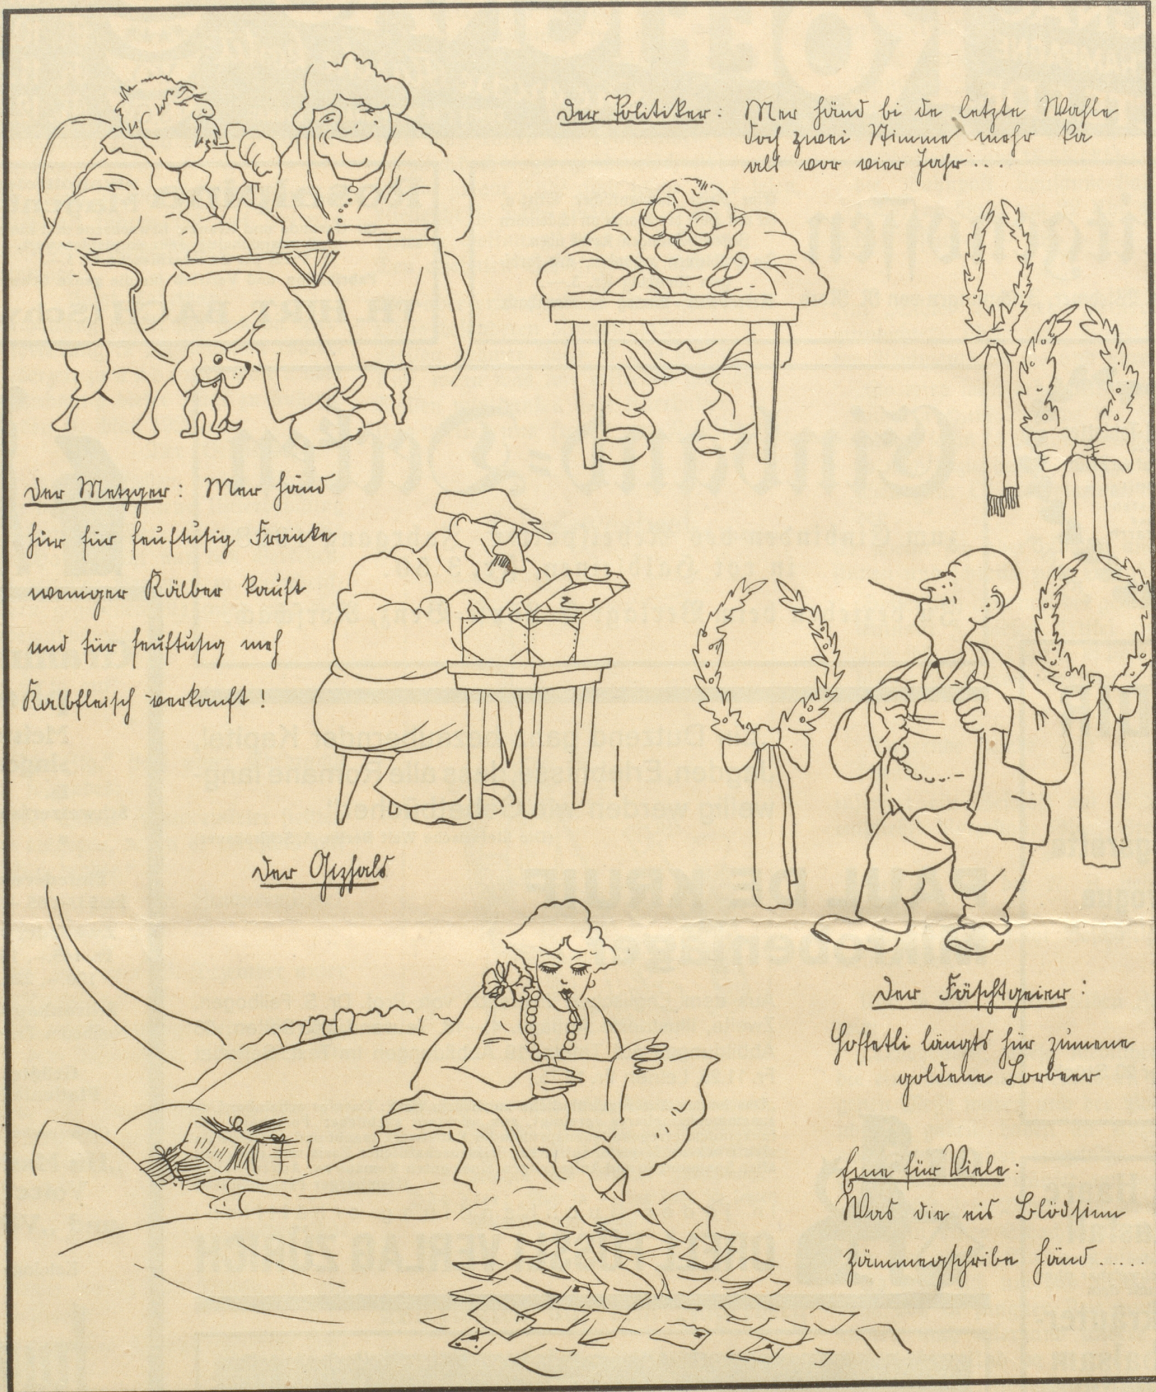 Der Politiker: Mer händ bi de letzte Wahle
doch zwei Stimme mehr ka
als vor vier Jahr...
Der Metzger: Mer händ
hür für feuftusig Franke
weniger Kälber kauft
und für feuftusig meh
Kalbfleisch verkauft!
Der Gizhals
Der Fäschtgeier:
Hoffetli längts hür zumene
goldene Lorbeer
Eine für Viele:
Was die eis Blödsinn
zämmegschribe händ.....